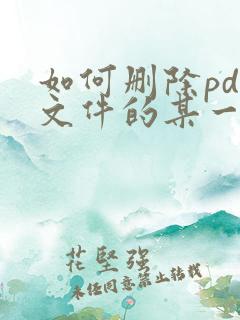 如何删除pd
文件的某一
花坚强
未经同意禁止转载